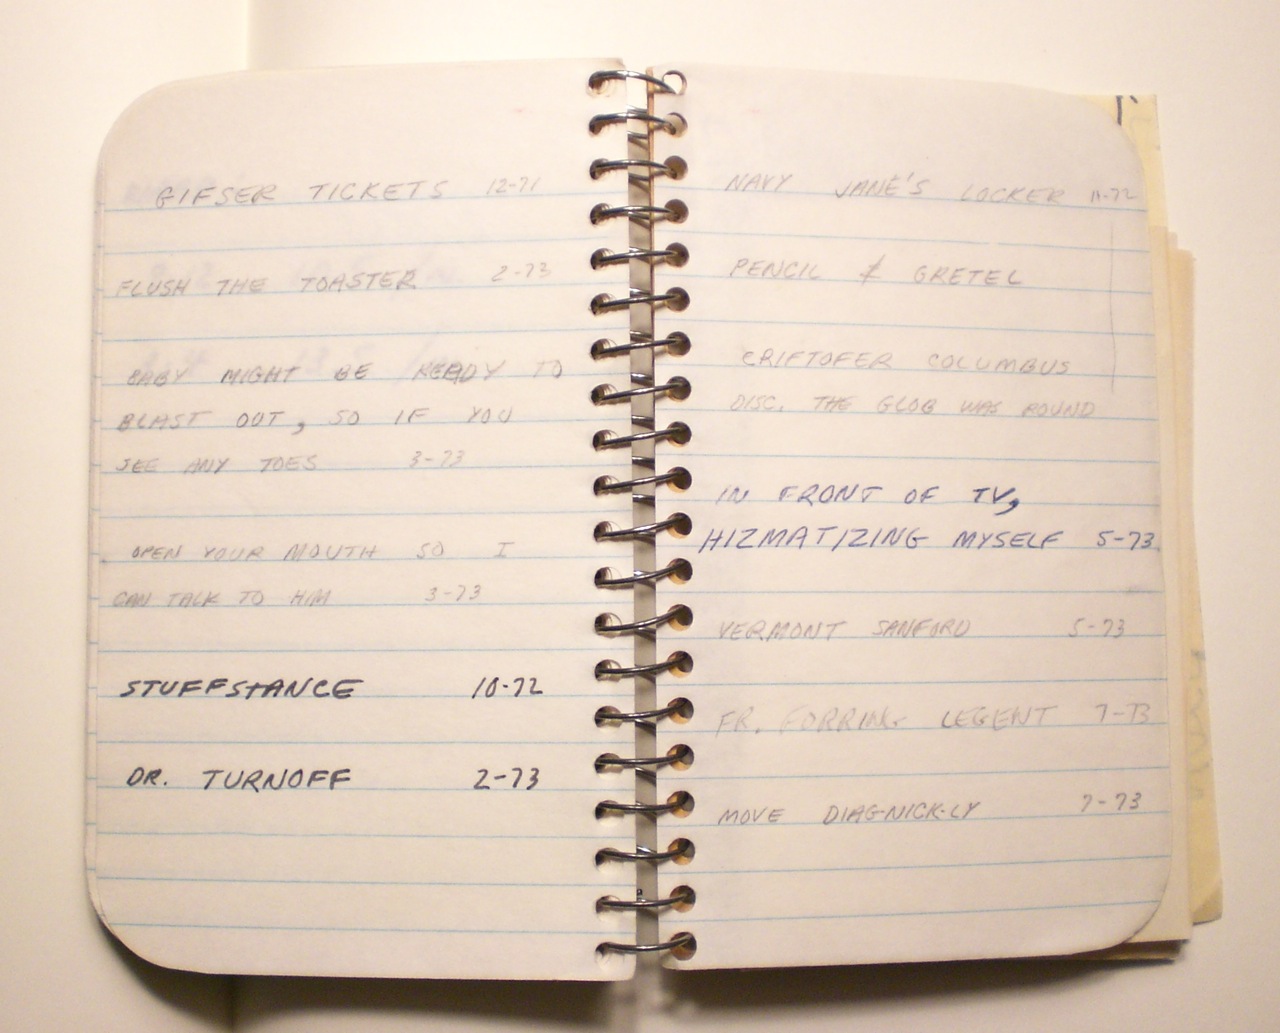 GIFSER TICKETS 12-71
FLUSH THE TOASTER 2-73
BABY MIGHT BE READY TO
BLAST OUT, SO IF YOU
SEE ANY TOES 3-73
OPEN YOUR MOUTH SO I
CAN TALK TO HIM 3-73
STUFFSTANCE 10-72
DR. TURNOFF 2-73
NAVY JANE'S LOCKER 11-72
PENCIL & GRETEL
CRIFTOFER COLUMBUS
DISC. THE GLOB WAS ROUND
IN FRONT OF TV,
HIZMATIZING MYSELF 5-73
VERMONT SANFORD 5-73
FR. FORRING LEGENT 7-73
MOVE DIAG-NICK-LY 7-73